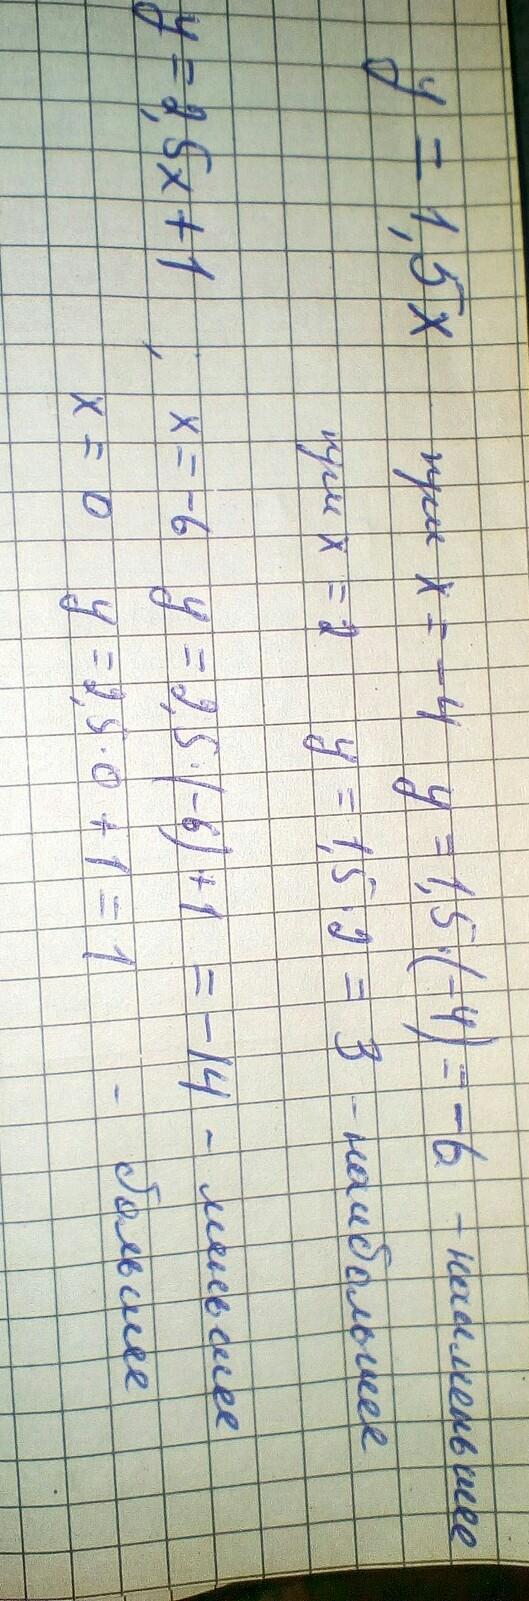 y = 1,5x при x = -4 y = 1,5·(-4) = -6 - наименьшее
при x = 2 y = 1,5·2 = 3 - наибольшее
y = 2,5x + 1, x = -6 y = 2,5·(-6) + 1 = -14 - меньшее
x = 0 y = 2,5·0 + 1 = 1 - большее